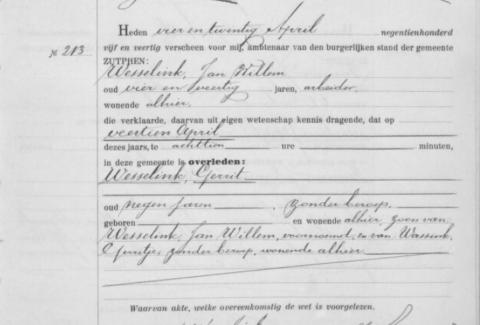 Heden vier en twintig April negentienhonderd
№ 213
vijf en veertig verscheen voor mij, ambtenaar van den burgerlijken stand der gemeente
ZUTPHEN:
Wesselink, Jan Willem
oud vier en veertig jaren, arbeider,
wonende alhier,
die verklaarde, daarvan uit eigen wetenschap kennis dragende, dat op
veertien April
dezes jaars, te achttien ure minuten,
in deze gemeente is overleden:
Wesselink, Gerrit
oud negen jaren, zonder beroep,
geboren en wonende alhier, zoon van
Wesselink, Jan Willem, voornoemd, en van Wassink,
zonder beroep, wonende alhier
Waarvan akte, welke overeenkomstig de wet is voorgelezen.